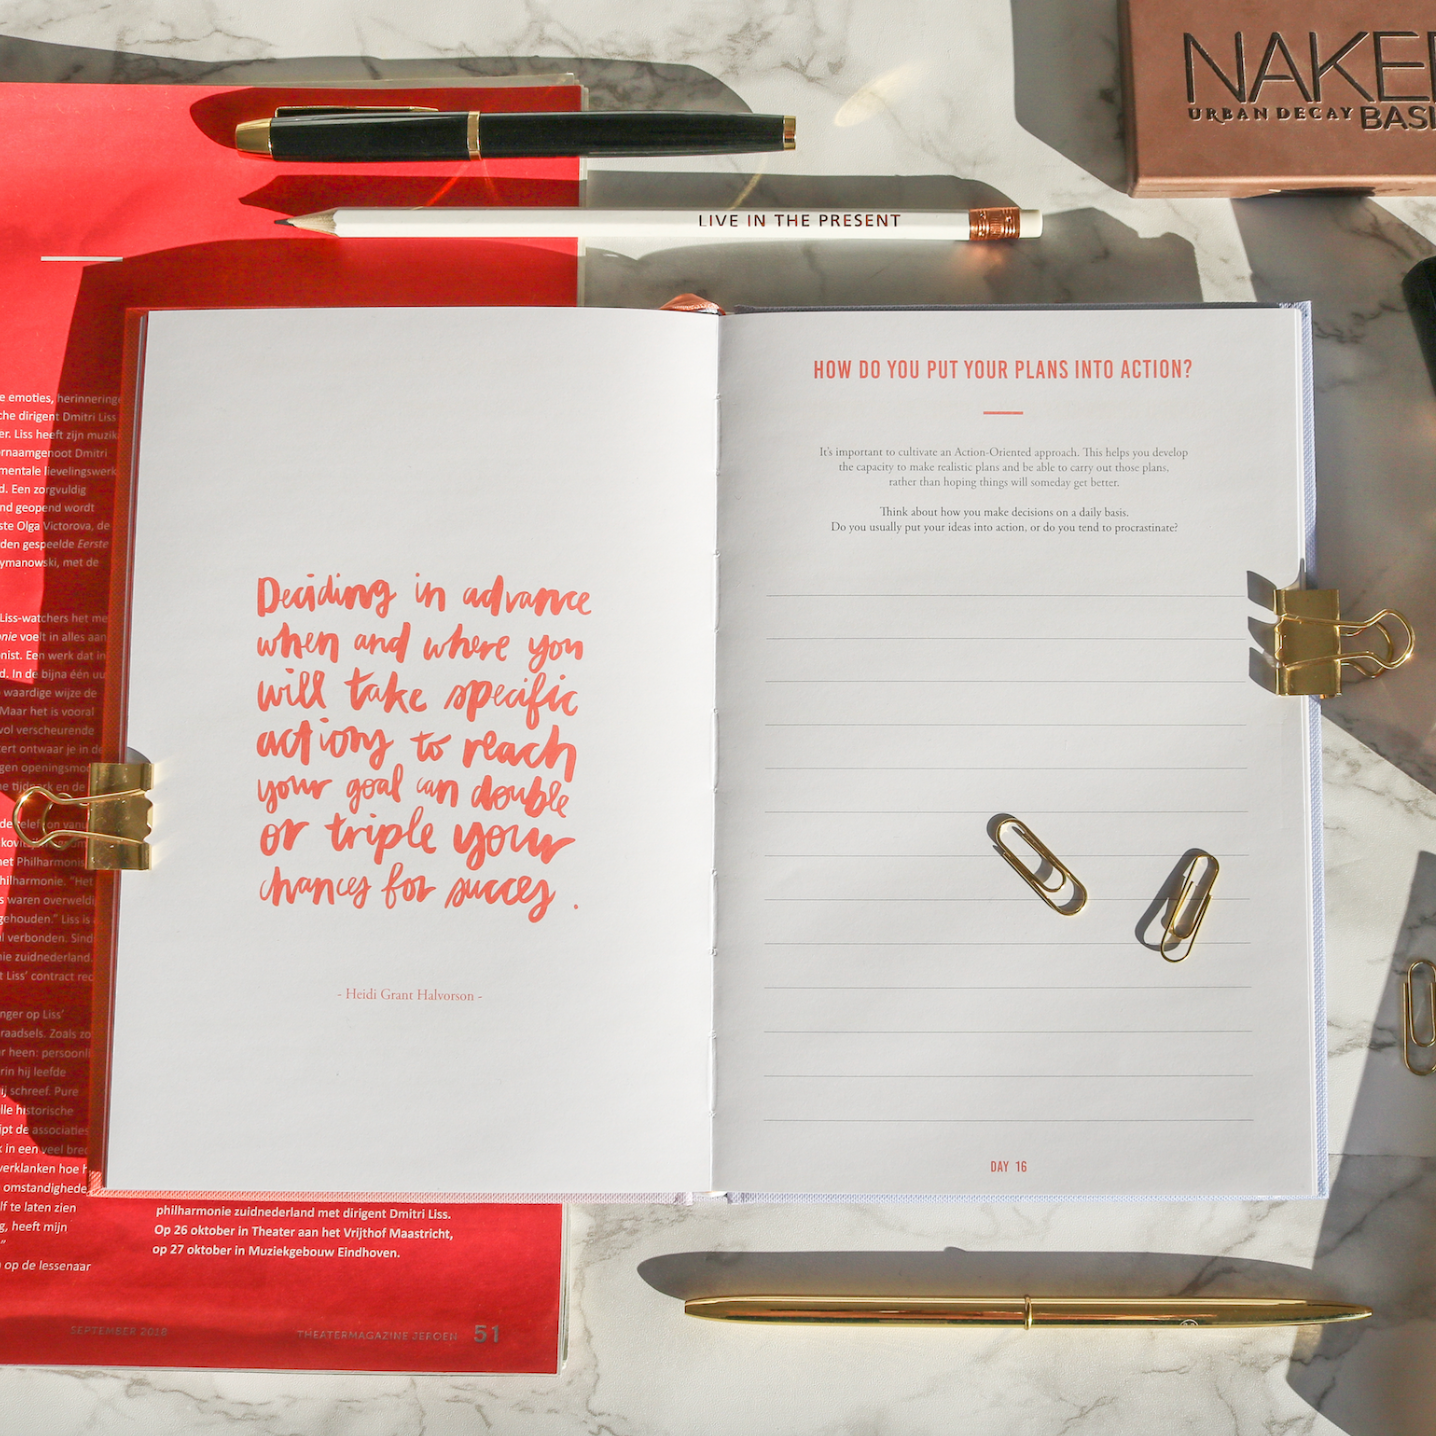 NAKED
URBAN DECAY BASI
LIVE IN THE PRESENT
Deciding in advance
when and where you
will take specific
actions to reach
your goal can double
or triple your
chances for succes .
- Heidi Grant Halvorson -
HOW DO YOU PUT YOUR PLANS INTO ACTION?
It's important to cultivate an Action-Oriented approach. This helps you develop
the capacity to make realistic plans and be able to carry out those plans,
rather than hoping things will someday get better.
Think about how you make decisions on a daily basis.
Do you usually put your ideas into action, or do you tend to procrastinate?
DAY 16
e emoties, herinneringe
che dirigent Dmitri Liss
er. Liss heeft zijn muzik
ernaamgenoot Dmitri
mentale lievelingswerk
d. Een zorgvuldig
nd geopend wordt
ste Olga Victorova, de
den gespeelde Eerste
ymanowski, met de
Liss-watchers het me
nie voelt in alles aan
nist. Een werk dat in
d. In de bijna één uu
waardige wijze de
Maar het is vooral
vol verscheurende
ert ontwaar je in de
gen openingsmo
e tijd en de
de
kov
het Philharmonis
hilharmonie. "Het
s waren overweldi
gehouden." Liss is
al verbonden. Sind
nie zuidnederland.
t Liss' contract rec
nger op Liss'
raadsels. Zoals zo
r heen: persoonli
rin hij leefde
ij schreef. Pure
lle historische
ipt de associaties
k in een veel bred
verklanken hoe h
omstandighede
lf te laten zien
g, heeft mijn
"
op de lessenaar
philharmonie zuidnederland met dirigent Dmitri Liss.
Op 26 oktober in Theater aan het Vrijthof Maastricht,
op 27 oktober in Muziekgebouw Eindhoven.
SEPTEMBER 2018 THEATERMAGAZINE JEROEN 51